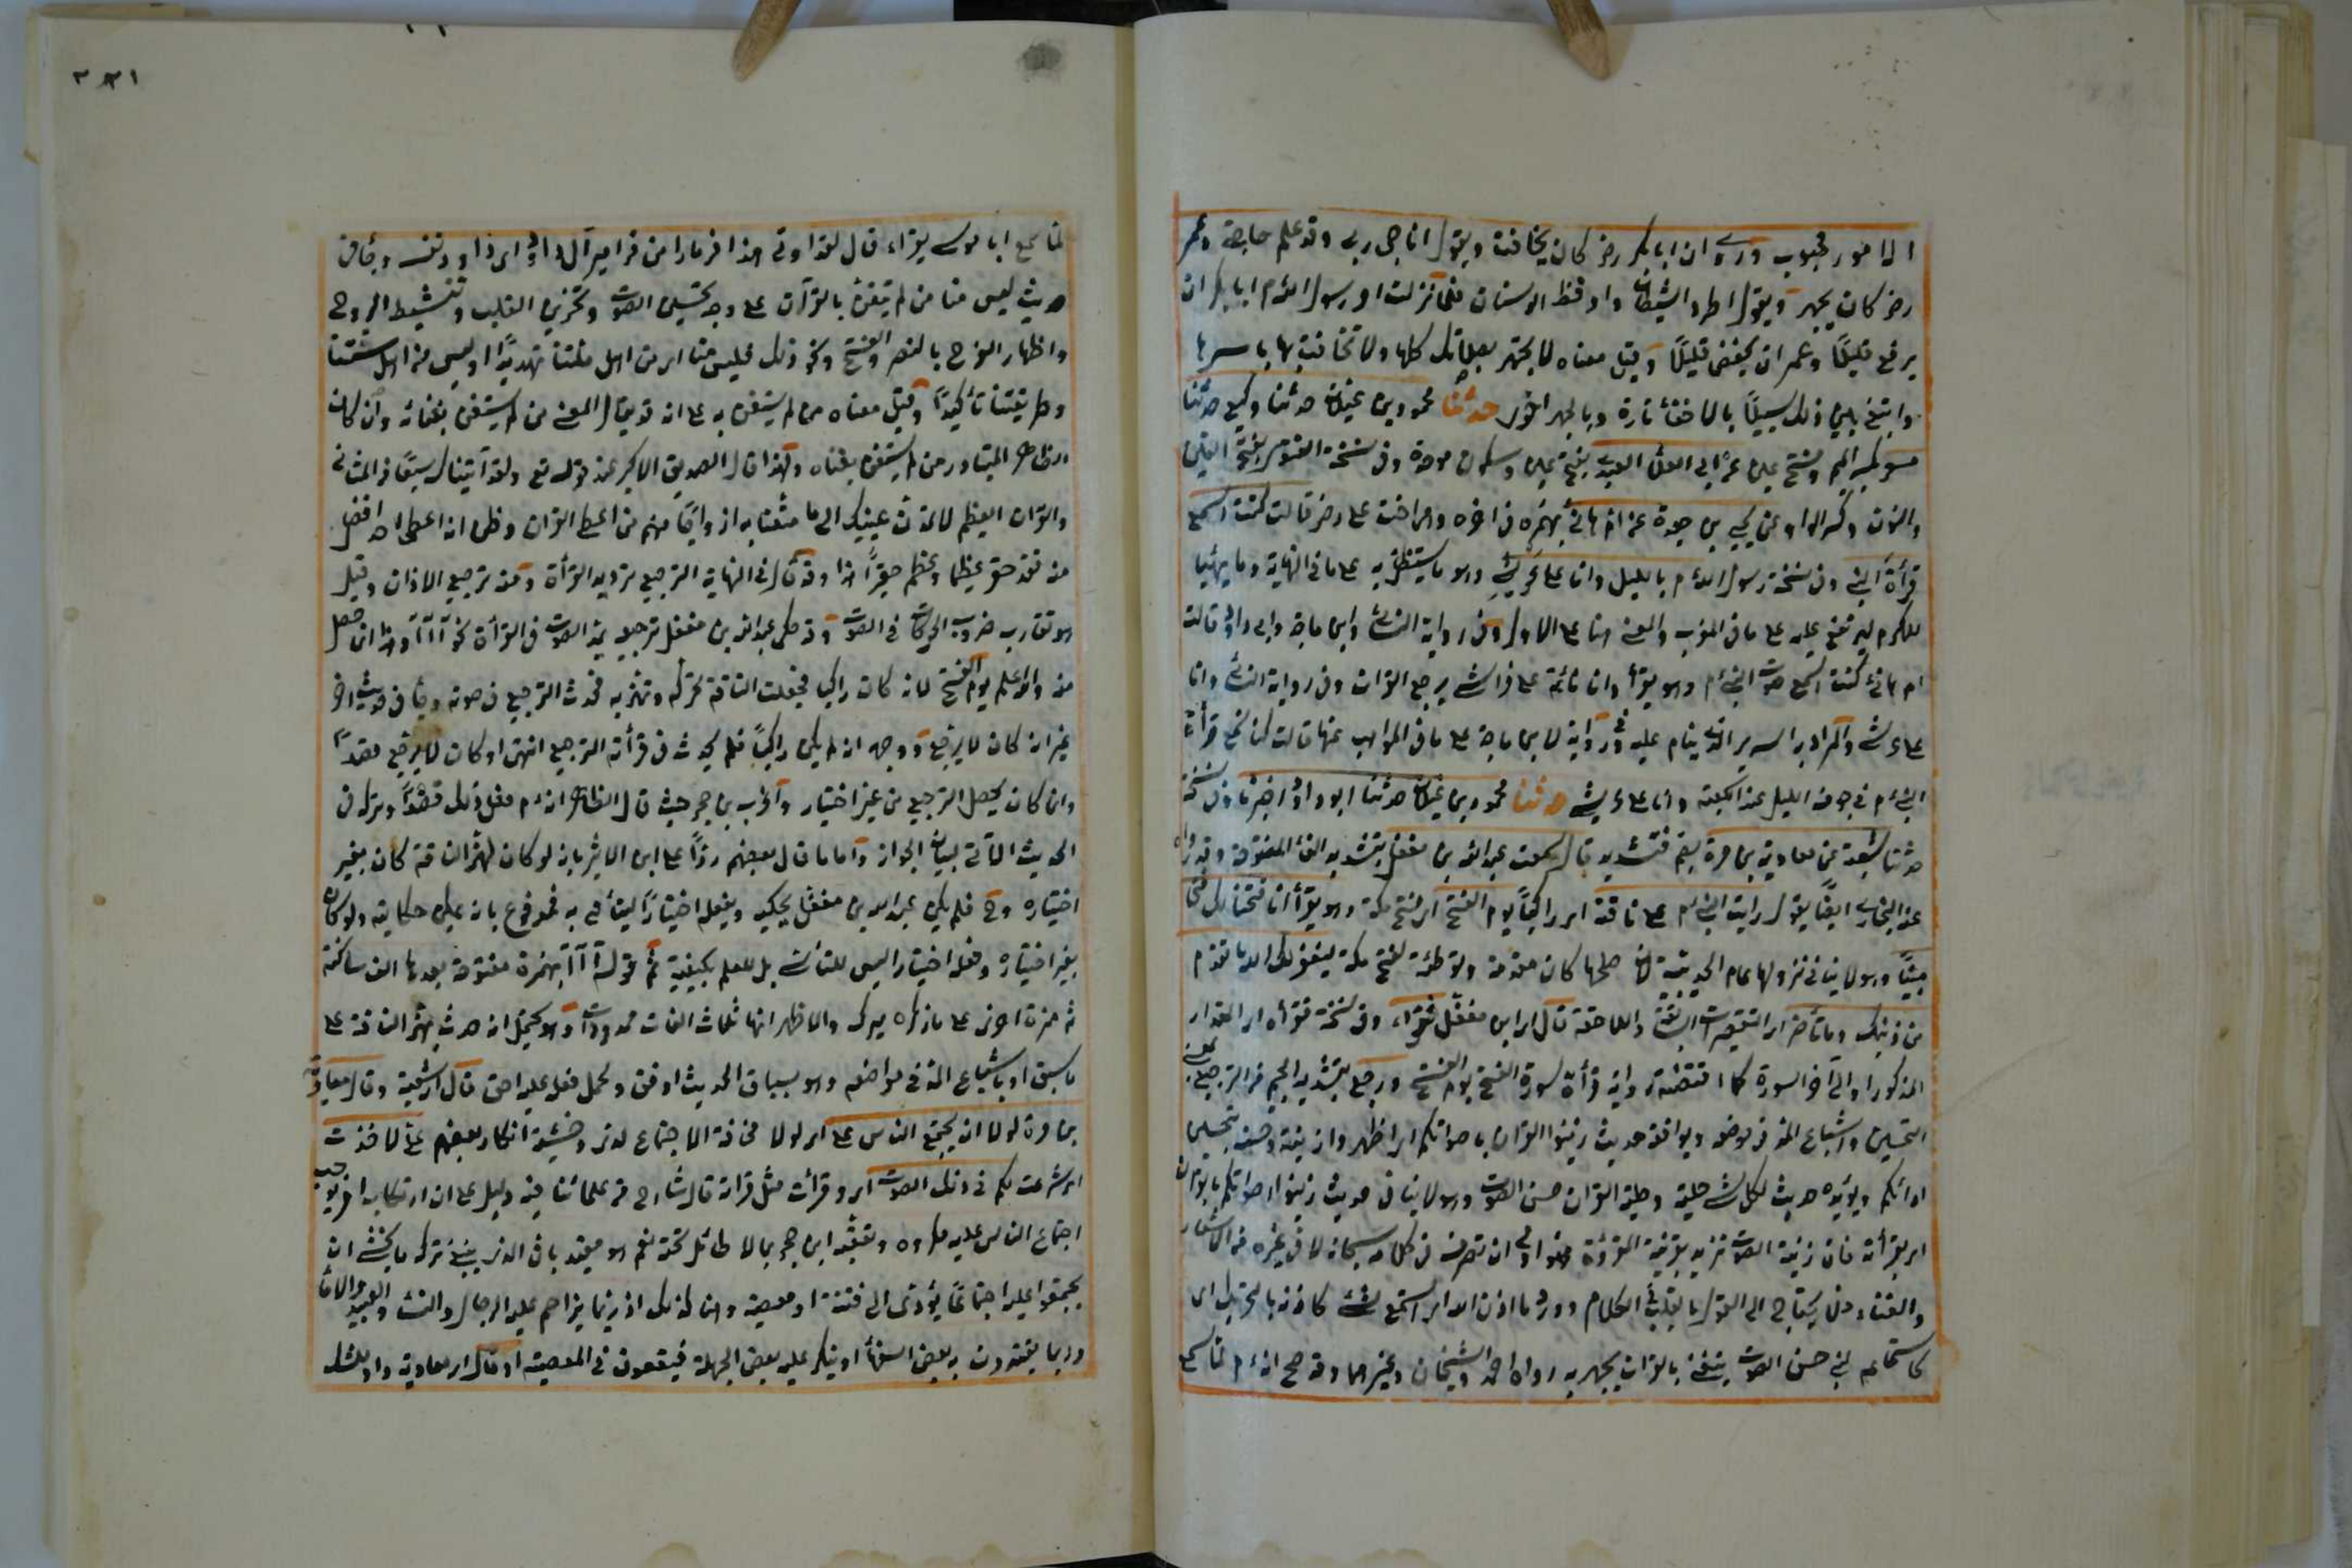 الامور محبوب وروى ان ابا بكر رضـ كان يخافت ويقول اناجى ربى وقد علم حاجتى وعمر
رضـ كان يجهر ويقول اطرد الشيطان واوقظ الوسنان فلما نزلت امر رسول اللهم ابا بكر ان
يرفع قليلًا وعمر ان يخفض قليلًا وقيل معناه لا تجهر بصلاتك كلها ولا تخافت بها باسرها
وابتغ بين ذلك سبيلًا بالمخافتة تارة وبالجهر اخرى حدثنا محمود بن غيلان حدثنا وكيع حدثنا
مسعر بكسر الميم وفتح عين عن ابى العلاء العبدى بفتح عين وسكون موحدة وفى نسخة الغنوى بفتح الغين
والنون وكسر الواو عن يحيى بن جعدة عن ام هانئ بهمزه فى اخره وهى اخت على رضـ قالت كنت اسمع
قرأة النبى وفى نسخة رسول اللهم بالليل وانا على عريشى وهو ما يستظل به على ما فى النهاية وما يهيئ
للكرم ليرتفع عليه على ما فى المغرب والمعنى هنا على الاول وفى رواية النسائى وابن ماجة وابى داود قالت
ام هانئ كنت اسمع صوت النبىءم وهو يقرأ وانا نائمة على فراشى يرجع القران وفى رواية النسائى وانا
على عرشى والمراد به السرير الذى ينام عليه وفى رواية لابن ماجة على ما فى المواهب عنها قالت كنا نسمع قرأة
النبىءم فى جوف الليل عند الكعبة وانا على عريشى حدثنا محمود بن غيلان حدثنا ابو داود اخبرنا وفى نسخة
حدثنا شعبة عن معاوية بن قرة بضم فتشديد قال سمعت عبد الله بن مغفل بتشديد الفاء المفتوحة وقد رواه
عنه البخارى ايضًا يقول رايت النبىءم على ناقته اى راكبًا يوم الفتح اى فتح مكة وهو يقرأ انا فتحنا لك فتحا
مبينًا وهو لا ينافى نزولها عام الحديبية لان صلحها كان مقدمة وتوطئة لفتح مكة ليغفر لك الله ما تقدم
من ذنبك وما تأخر اى التقصيرات السابقة واللاحقة قال اى ابن مغفل فقرأ وفى نسخة فقرأه اى المقدار
المذكور او الى آخر السورة كما اقتضته رواية قرأة سورة الفتح يوم الفتح ورجع بتشديد الجيم من الترجيع بمعنى
التحسين واشباع المد فى موضعه ويوافقه حديث زينوا القران باصواتكم اى اظهروا زينته وحسنه بتحسين
ادائكم ويؤيده حديث لكل شئ حلية وحلية القران حسن الصوت وهو لا ينافى حديث زينوا اصواتكم بالقران
اى بقرأته فان زينة الصوت تزيد بقرينة المقروءة فهذا اولى ان تصرف فى كلامه سبحانه لا فى غيره من الاشعار
والغناء فلا يحتاج الى القول بالقلب فى الكلام وورد ما اذن الله اى استمع لشئ كاذنه بالتحريك اى
كاستماعه لنبى حسن الصوت يتغنى بالقران يجهر به رواه احمد والشيخان وغيرهما وقد صح انهءم لما سمع
لما سمع ابا موسى يقرأ، قال لقد اوتى هذا مزمارا من مزامير آل داود اى داود نفسه وجاء فى
حديث ليس منا من لم يتغن بالقرآن على وجه تحسين الصوت وتحزين القلب وتنشيط الروح
واظهار الفرح بالنصر والفتح ونحو ذلك فليس منا اى من اهل ملتنا تهديدًا او ليس من اهل سنتنا
وطريقتنا تأكيدًا وقيل معناه من لم يستغن به على انه قد يقال المعنى من لم يستغن بغنائه وان كان
الظاهر المتبادر من لم يستغن بغناه ولهذا قال الصديق الاكبر عند قوله تع ولقد آتيناك سبعًا من المثانى
والقران العظيم لا تمدن عينيك الى ما متعنا به ازواجًا منهم من اعطى القران وظن انه اعطى احد افضل
منه فقد حقر عظيما وعظم حقيرًا هذا وقد قال فى النهاية الترجيع ترديد القرأة ومنه ترجيع الاذان وقيل
هو تقارب ضروب الحركات فى الصوت وقد حكى عبد الله بن مغفل ترجيعه بمد الصوت فى القرأة نحو آآآ وهذا انما حصل
منه والله اعلم يوم الفتح لانه كان راكبا فجعلت الناقة تحركه وتهز به فحدث الترجيع فى صوته وجاء فى حديث اخر
غير انه كان لا يرجع ووجهه انه لم يكن راكبًا فلم يحدث فى قرأته الترجيع انتهى او كان لا يرجع قصدًا
وانما كان يحصل الترجيع من غير اختيار واغرب بن حجر حيث قال الظاهر انهءم فعل ذلك قصدًا وتركه فى
الحديث الآتى لبيان الجواز واما ما قال بعضهم ردًا على ابن الاثير بانه لو كان لهز الناقة كان بغير
اختياره وح فلم يكن عبد الله بن مغفل يحكيه ويفعله اختيارًا ليتأسى به فمدفوع بانه يمكن حكايته ولو كان
بغير اختياره وفعله اختيارا ليس للتأسى بل للعلم بكيفيته ثم قوله آآآ بهمزة مفتوحة بعدها الف ساكنة
ثم همزة اخرى على ما ذكره ميرك والاظهر انها ثلاث الفات ممدودات وهو يحتمل انه حدث بهز الناقة على
ما سبق او باشباع المد فى مواضعه وهو بسياق الحديث اوفق وحمل فعله عليه احق قال اى شعبة وقال معاوية
بن قرة لولا ان يجتمع الناس على اى لولا مخافة الاجتماع لدى وخشية انكار بعضهم على لاخذت
اى شرعت لكم فى ذلك الصوت اى وقرأت مثل قرأته قال شارح من علمائنا فيه دليل على ان ارتكاب امر يوجب
اجتماع الناس عليه مكروه وتعقبه ابن حجر بما لا طائل تحته نعم هو مقيد بان الذى ينبغى تركه ما يخشى ان
يجتمعوا عليه اجتماعًا يؤدى الى فتنة او معصية وهنا كذلك اذ ربما يزاحم عليه الرجال والنساء والعبيد والاماء
وربما يقتدون به بعض السفهاء او ينكر عليه بعض الجهلة فيقعون فى المعصية او قال اى معاوية واو للشك